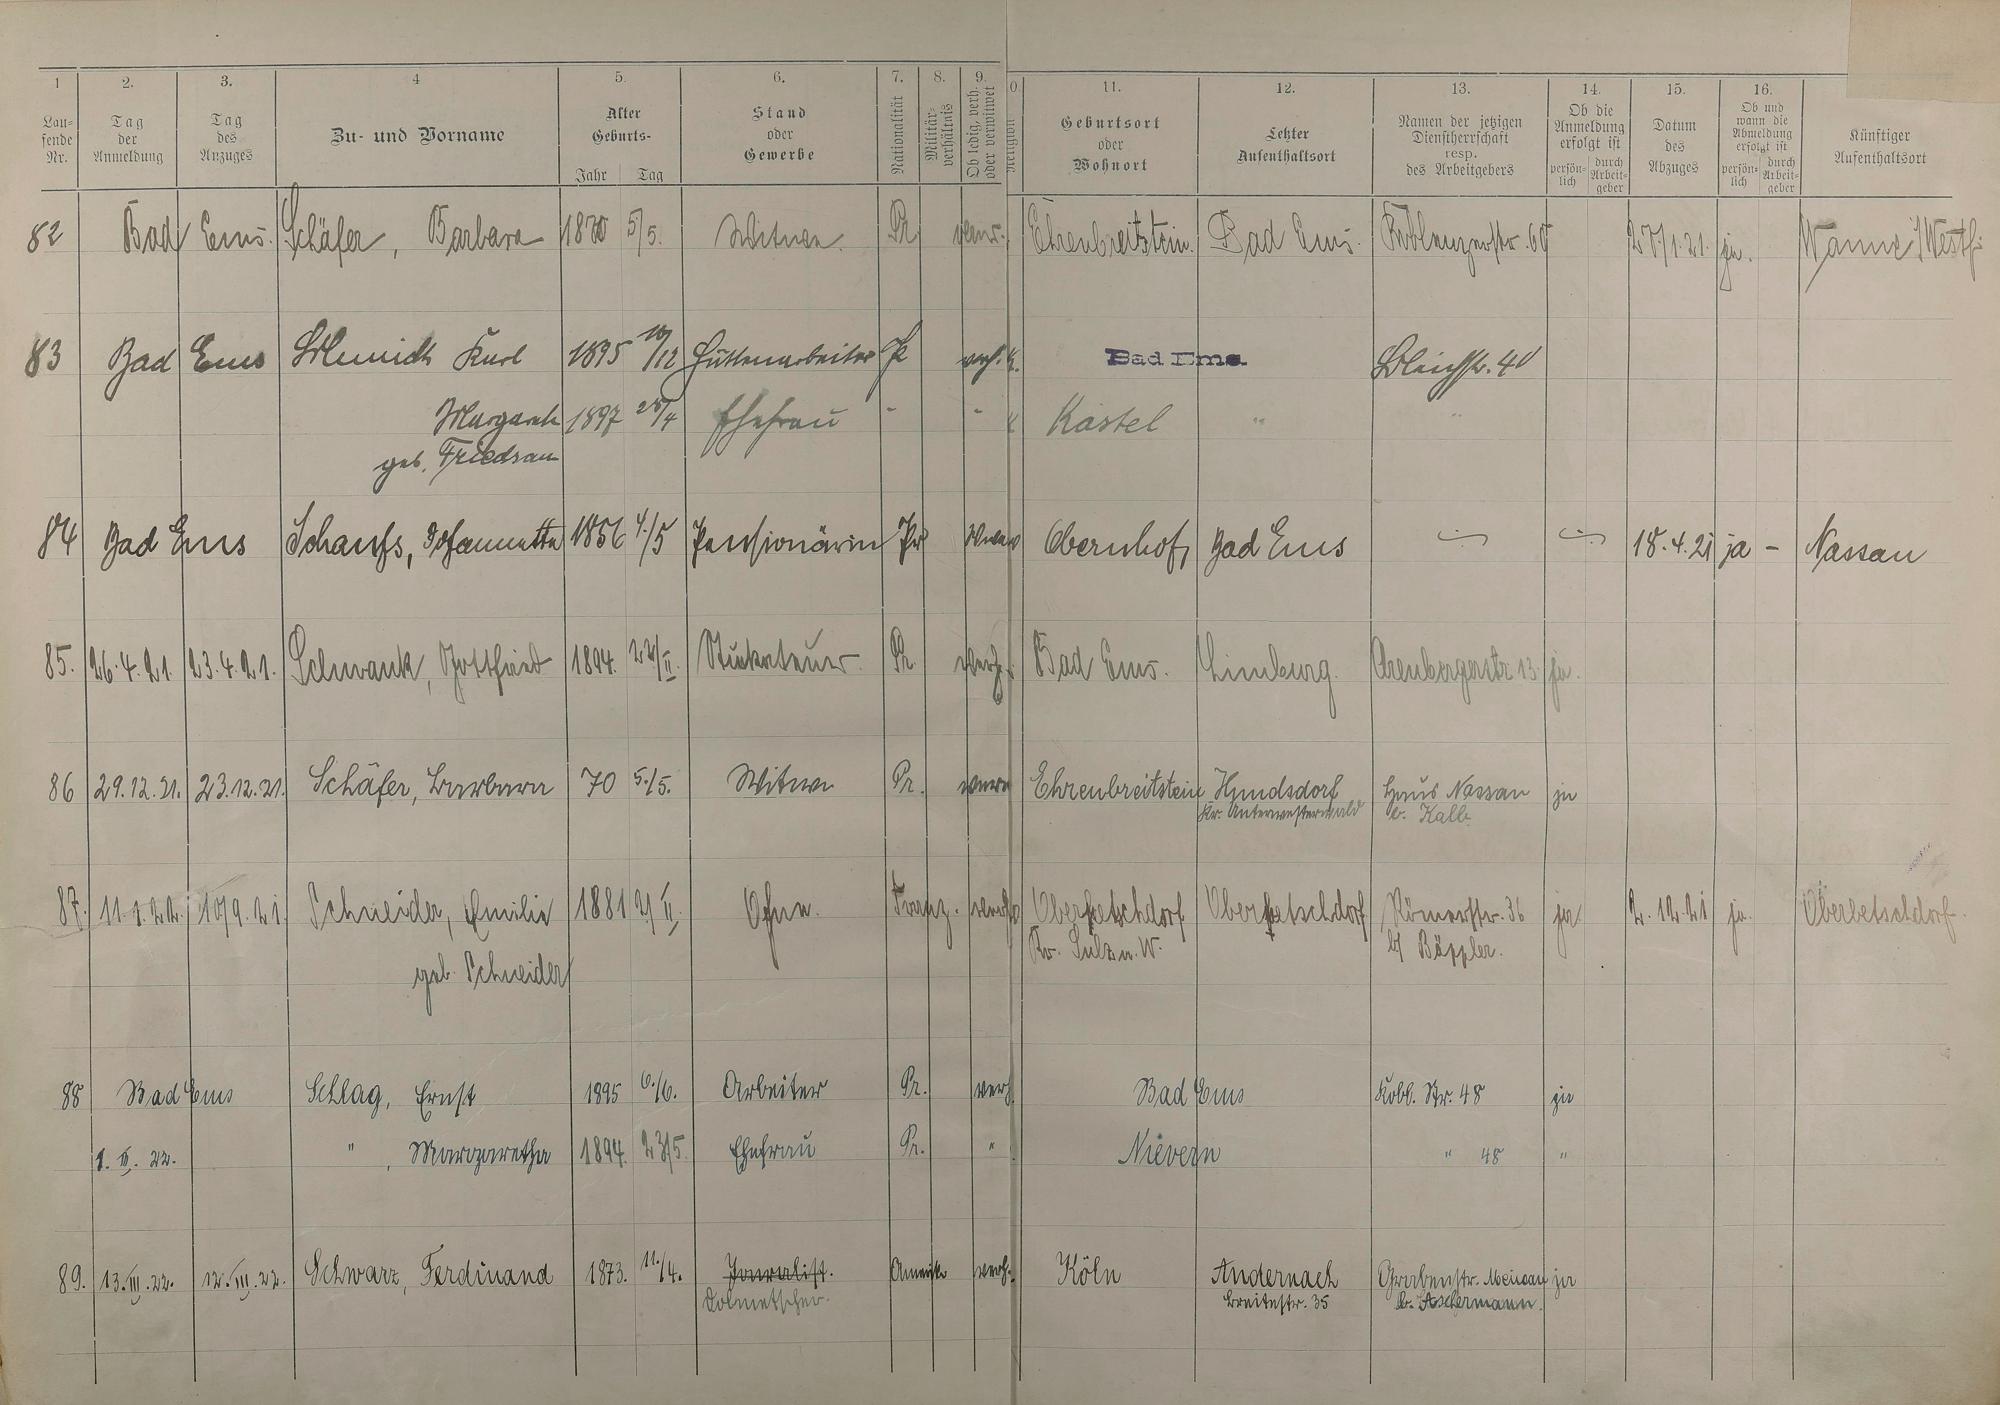 1 2. 3. 4 5. 6. 7. 8. 9. 0 11. 12. 13. 14. 15. 16.
Lau-
fende
Nr.
Tag
der
Anmeldung
Tag
des
Anzuges
Zu- und Vorname
Alter
Geburts-
Jahr Tag
Stand
oder
Gewerbe
Nationalität
Militär-
verhältnis
Ob ledig, verh.
oder verwitwet
Religion
Geburtsort
oder
Wohnort
Letzter
Aufenthaltsort
Namen der jetzigen
Dienstherrschaft
resp.
des Arbeitgebers
Ob die
Anmeldung
erfolgt ist
persön-
lich
durch
Arbeit-
geber
Datum
des
Abzuges
Ob und
wann die
Abmeldung
erfolgt ist
persön-
lich
durch
Arbeit-
geber
Künftiger
Aufenthaltsort
82 Bad Ems. Schäfer, Barbara 1870 5/5. Witwe. Pr. Ehrenbreitstein. Bad Ems. Koblenzerstr. 60 27/1.21. ja. Wanne i/Westf.
83 Bad Ems Schmidt Karl 1895 10/12 Hüttenarbeiter Pr verh. K. Bad Ems. Bleichstr. 40
Margareth 1897 28/4 Ehefrau " " K Kastel " "
geb. Friedsam
84 Bad Ems Schaufs, Johannette 1856 4./5 Pensionärin Pr Obernhof, Bad Ems 18.4.21 ja - Nassau
85. 26.4.21. 23.4.21. Schwank, Gottfried 1894. 22/II. Stukateur. Pr. verh. Bad Ems. Limburg. Arenbergerstr. 13. ja.
86 29.12.21. 23.12.21. Schäfer, Barbara 70 5./5. Witwe Pr. Ehrenbreitstein Hundsdorf Haus Nassau ja
Kr. Unterwesterwald b. Kalb
87. 11.1.22. 10/9.21. Schneider, Emilie 1881 2/II. Ohne. Franz. verh. Oberbetschdorf Oberbetschdorf Römerstr. 36 ja 2.12.21 ja. Oberbetschdorf.
Kr. Sulz u. W. b/ Bäppler.
geb. Schneider
88 Bad Ems Schlag, Ernst 1895 6./6. Arbeiter Pr. verh. Bad Ems Kobl. Str. 48 ja
1. III. 22. " , Margaretha 1894. 23/5. Ehefrau Pr. " Nievern " 48 "
89. 13.III.22. 12.III.22. Schwarz, Ferdinand 1873. 11./4. Jounalist. Amerik verh. Köln Andernach Grabenstr. ja
Dolmetscher. Breitestr. 35 b. Aschermann.